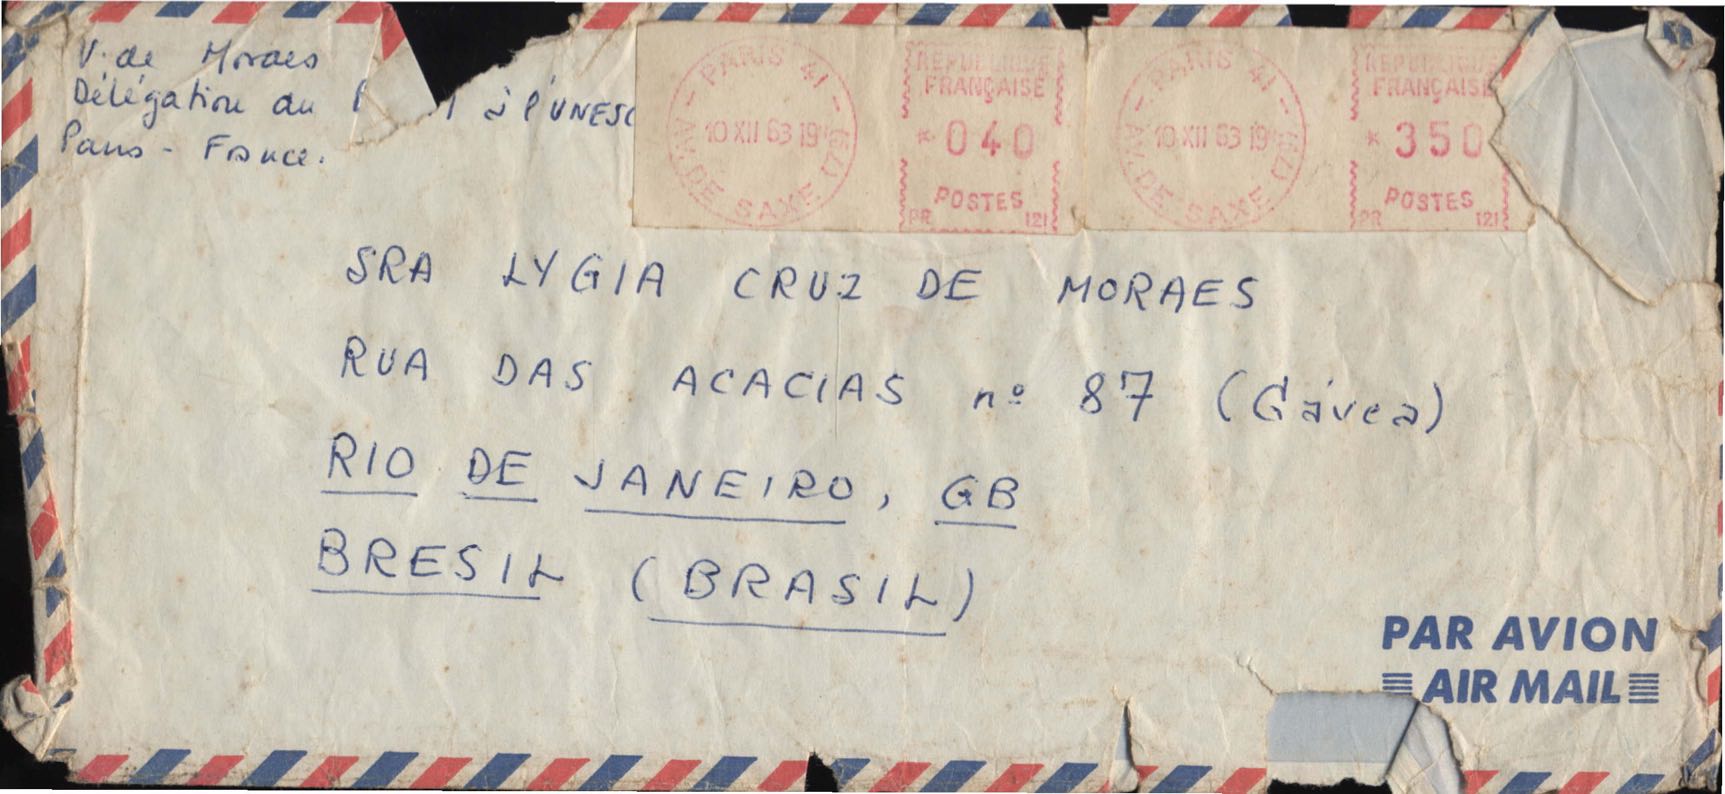 V. de Moraes
Délégation du à l'UNESC
Paris - France.
PARIS 41
10 XII 63 19
AV. DE SAXE (7E)
REPUBLIQUE
FRANÇAISE
* 040
POSTES
PR 121
PARIS 41
10 XII 63 19
AV. DE SAXE (7E)
REPUBLIQUE
FRANÇAISE
* 350
POSTES
PR 121
SRA LYGIA CRUZ DE MORAES
RUA DAS ACACIAS nº 87 (Gávea)
RIO DE JANEIRO, GB
BRESIL (BRASIL)
PAR AVION
AIR MAIL